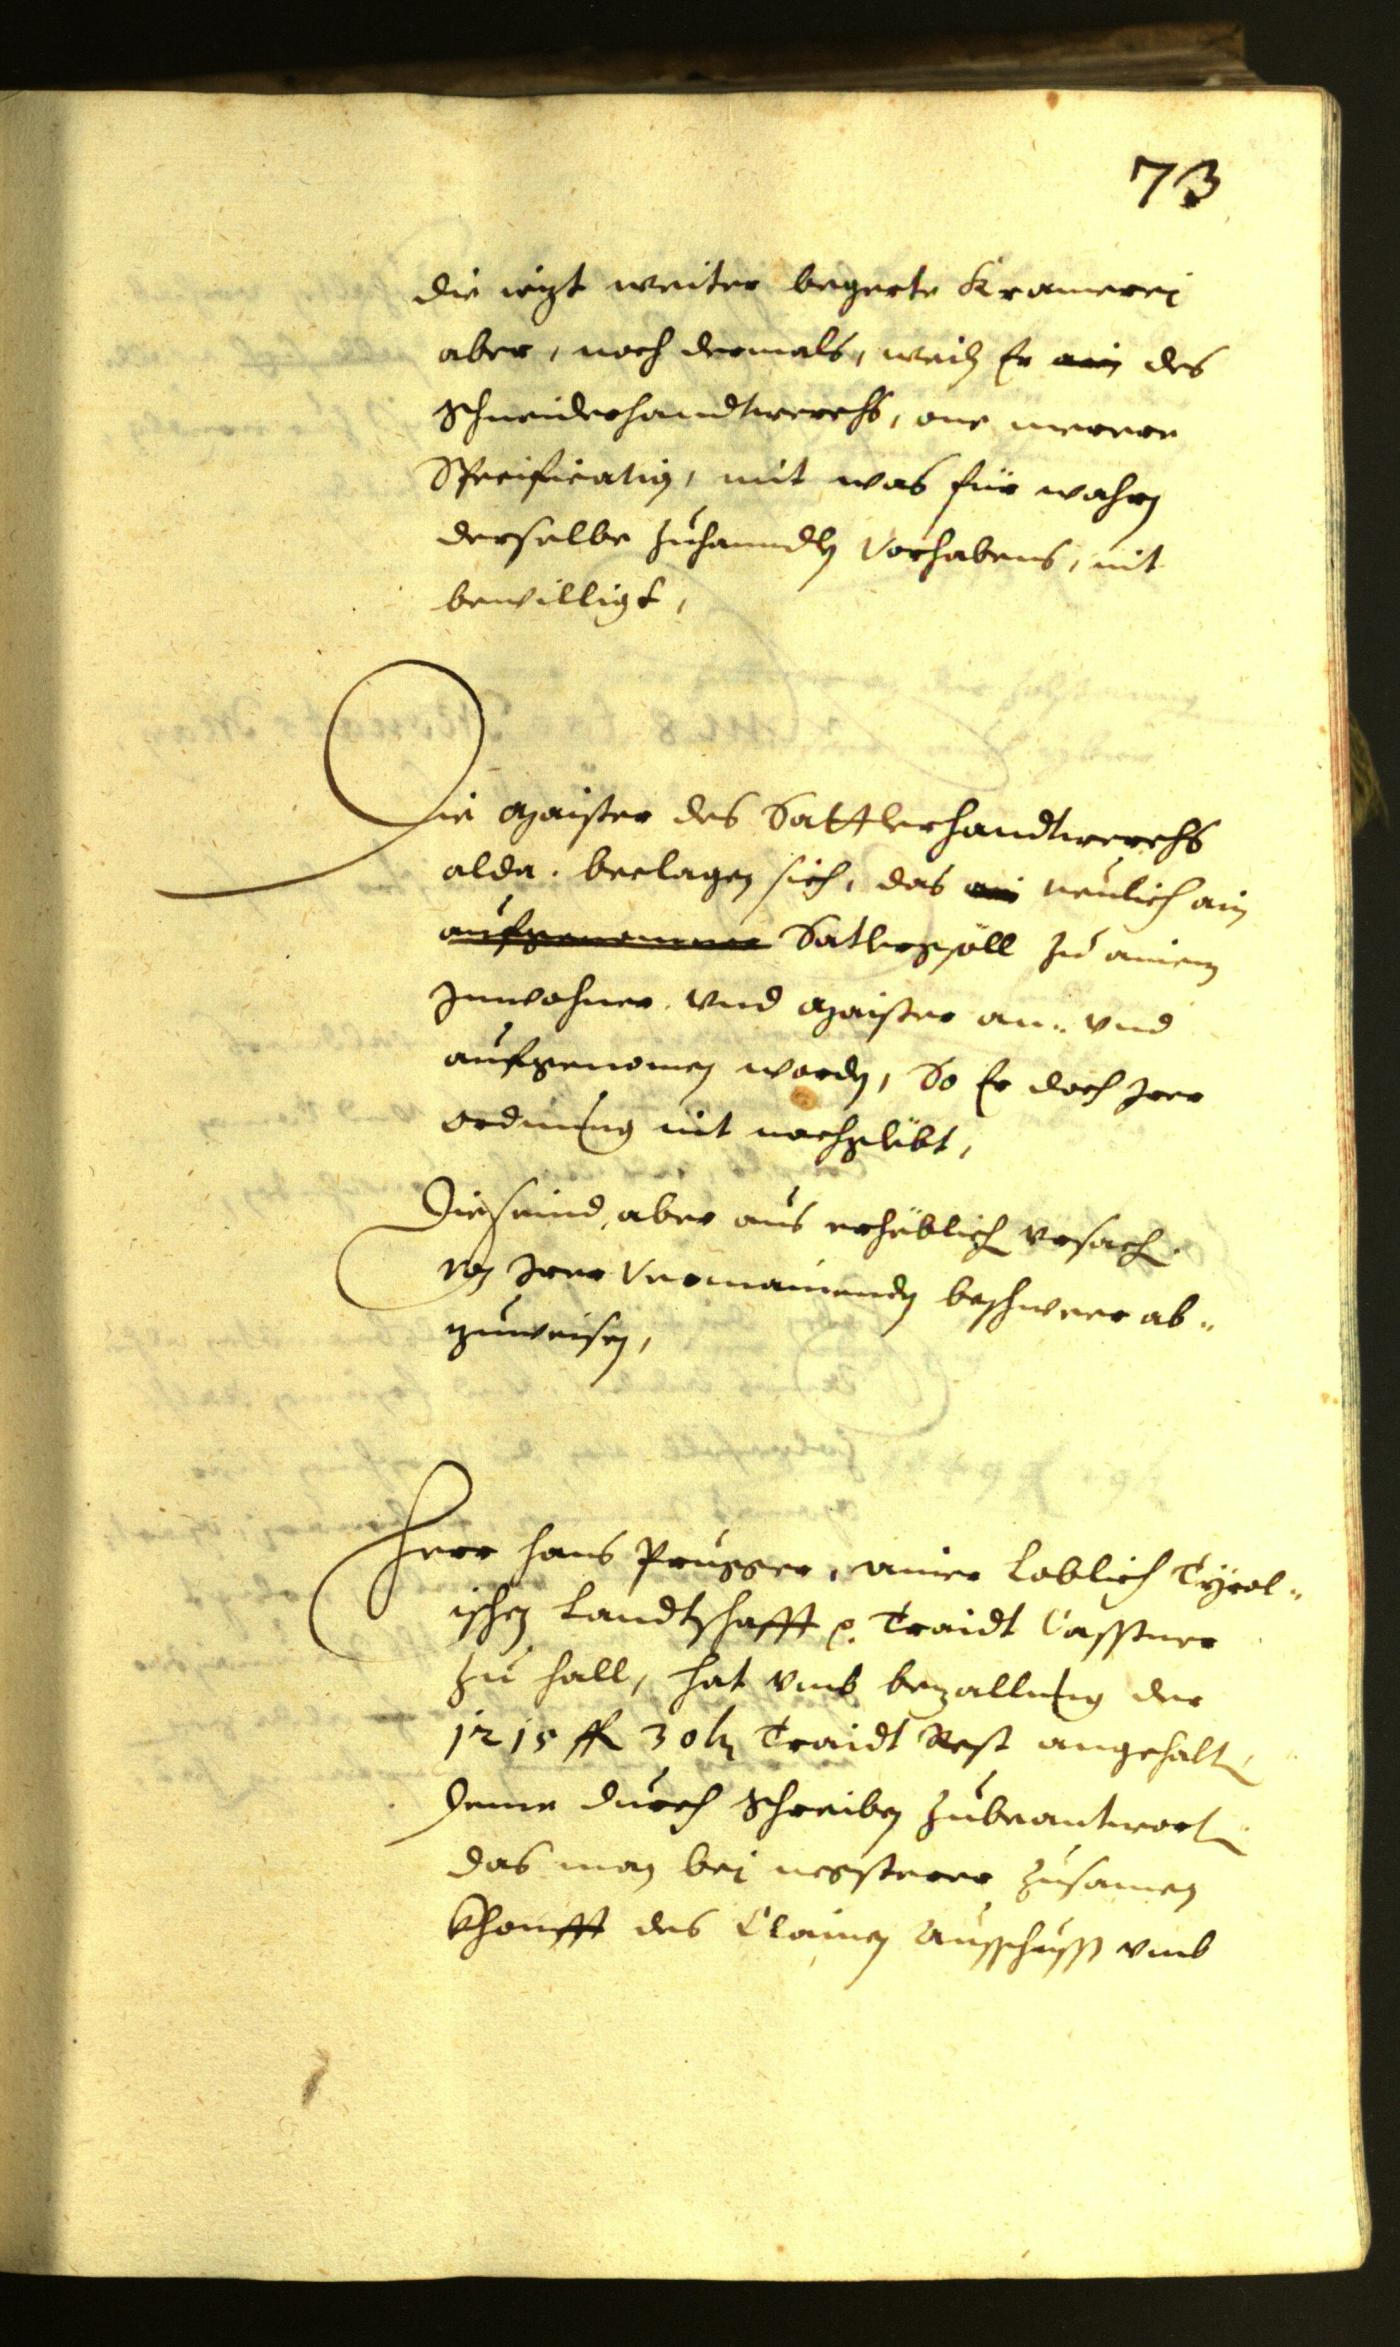 73
die iezt weiter begerte Kramerej
aber, noch dermals, weiln Er ain des
Schneiderhandtwerchs, one merere
Specification, mit was für wahrn
derselbe zuhanndln Vorhabens, nit
bewilligt,
Die Maister des Sattlerhandtwerchs
alda. beclagen sich, das ain neulich ain
aufgenomner Satlergsöll zu ainem
Jnwohner. vnd Maister an= vnd
aufgenomen wordn, So Er doch Jrer
ordnung nit nachglebt,
Die seind, aber aus erheblich vrsach.
von Jrer Vermainendn beschwer ab=
zuweisen,
Herr Hans Prugger, ainer Loblich Tÿrol=
ischen Landtschafft p. Traidt Casstner
zu Hall, hat vmb bezallung der
1215 fl 30 kr Traidt Rest angehalt,
Deme durch Schreiben zubeantwort
das man bej negsterer zusamen
Khonfft des Clainen Ausschuss vmb